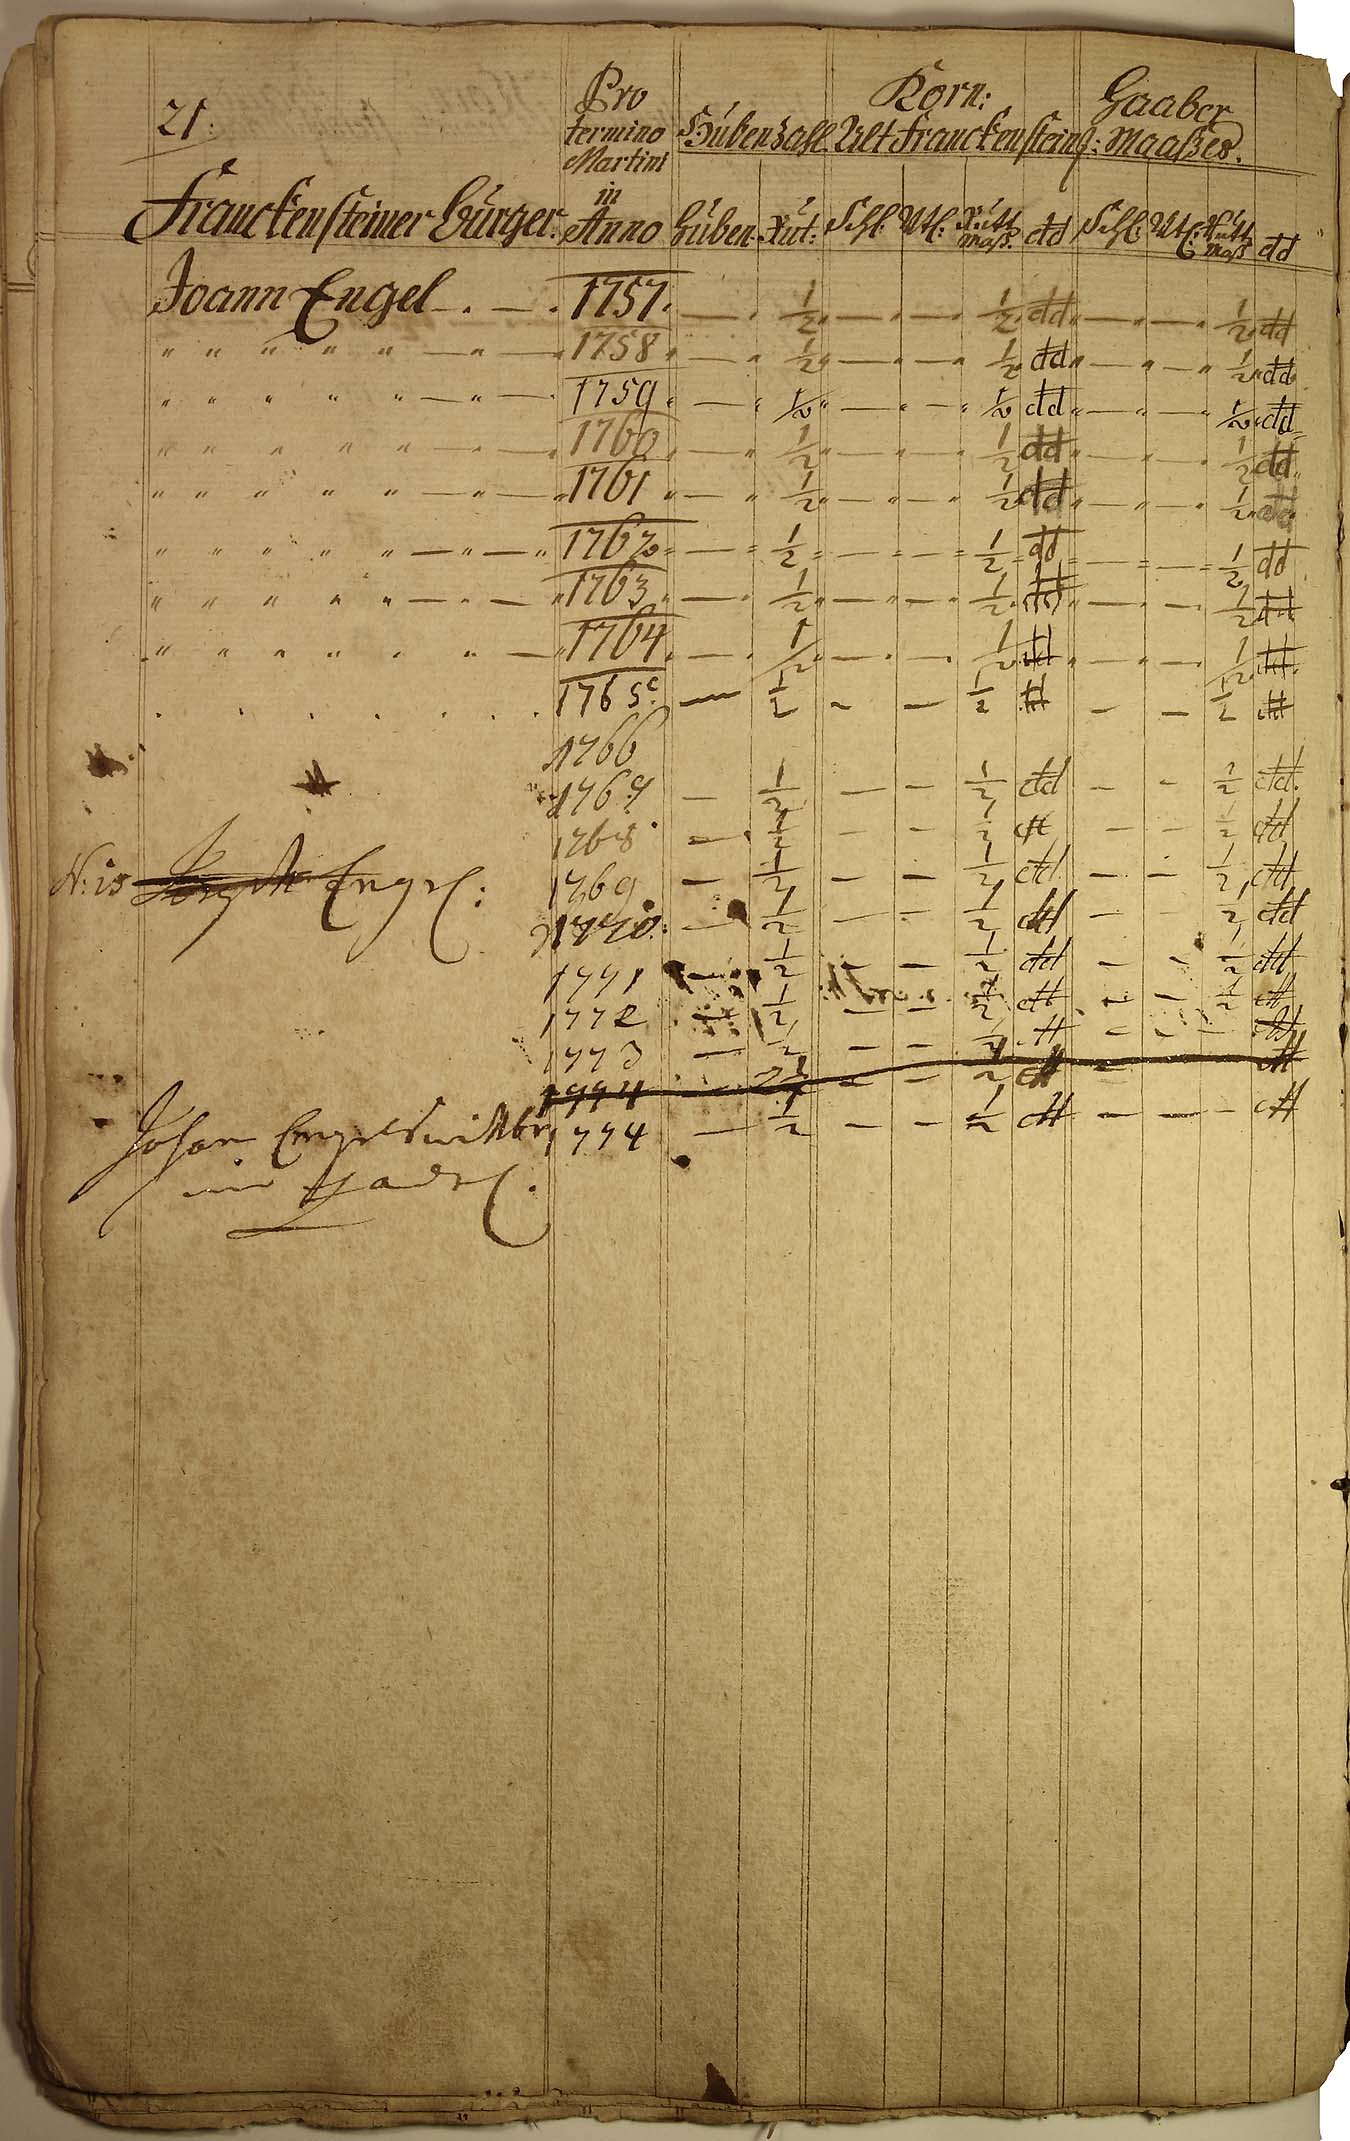 21:
Pro termino Martini in Anno
Korn: Gaaber
Hubenzahl Alt Franckensteing: Maaßes.
Franckensteiner Bürger: Huben: Rut: Schl: Vtl: Rutt Maß. dd Schl: Vtl: Rutt Maß dd
Joann Engel — 1757. — ½ — — ½ dd — — ½ dd
" " " " " — " — 1758 — ½ — — ½ dd — — ½ dd
" " " " " — " — 1759 — ½ — — ½ dd — — ½ dd
" " " " " — " — 1760 — ½ — — ½ dd — — ½ dd
" " " " " — " — 1761 — ½ — — ½ dd — — ½ dd
" " " " " — " — 1762 — ½ — — ½ dd — — ½ dd
" " " " " — " — 1763 — ½ — — ½ dd — — ½ dd
" " " " " " — 1764 — ½ — — ½ dd — — ½ dd
1765 — ½ — — ½ dd — — ½ dd
1766
1767 — ½ — — ½ dd — — ½ dd
1768 — ½ — — ½ dd — — ½ dd
Joseph Engel: 1769 — ½ — — ½ dd — — ½ dd
1770: — ½ — — ½ dd — — ½ dd
1771 — ½ — — ½ dd — — ½ dd
1772 — ½ — — ½ dd — — ½ dd
1773 — ½ — — ½ dd — — — dd
1774 — ½ — — ½ dd — dd
Johan Engels wittbe 1774 — ½ — — ½ dd — — — dd